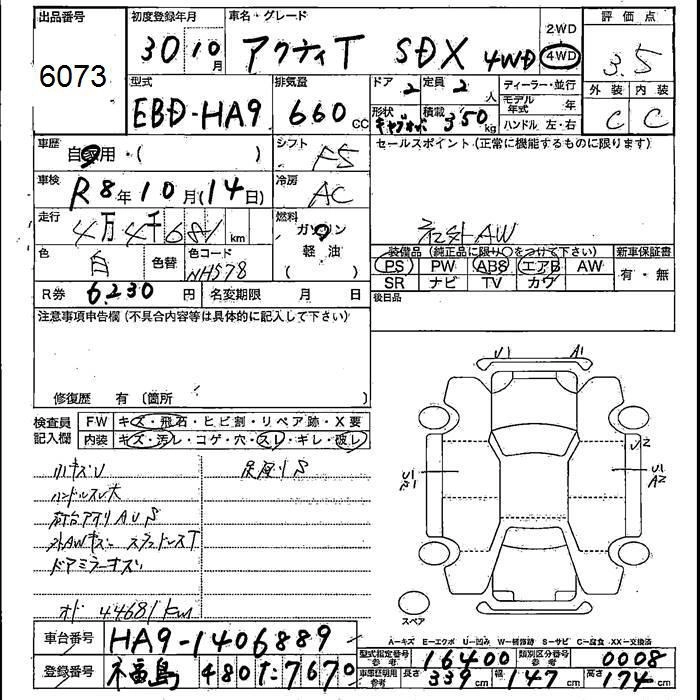 出品番号
6073
初度登録年月
30 10月
車名・グレード
アクティT SDX 4WD
2WD
4WD
評価点
3.5
外装 内装
C C
型式
EBD-HA9
排気量
660 CC
ドア 2
定員 2 人
形状 キャブオバ
積載 350 kg
ディーラー・並行
モデル年式 年
ハンドル 左・右
車歴
自家用・( )
シフト
F5
車検
R8年10月(14日)
冷房
AC
走行
4万4千681 km
燃料
ガソリン
軽油
( )
色
白
色替
色コード
NH578
R券 6,230 円
名変期限 月 日
セールスポイント(正常に機能するものに限ります)
社外AW
装備品(純正品に限り○をつけて下さい)
PS PW ABS エアB AW
SR ナビ TV カワ
新車保証書
有・無
後日品
注意事項申告欄(不具合内容等は具体的に記入して下さい)
修復歴 有(箇所 )
検査員記入欄
FW キズ・飛石・ヒビ割・リペア跡・X要
内装 キズ・汚レ・コゲ・穴・スレ・ギレ・破レ
小キズU
ハンドルスレ大
荷台アオリAUS
外AWキズ スタッドレスT
ドアミラーキズ
オド 44681km
V1
A1
U1
S1
U2
U1
A2
スペア
A-キズ E-エクボ U-凹み W-補修跡 S-サビ C-腐食 XX-交換済
車台番号 HA9-1406889
登録番号 福島 480た7670
型式指定番号 参考 16400
類別区分番号 参考 0008
車庫証明用 参考
長さ 339 cm
幅 147 cm
高さ 174 cm